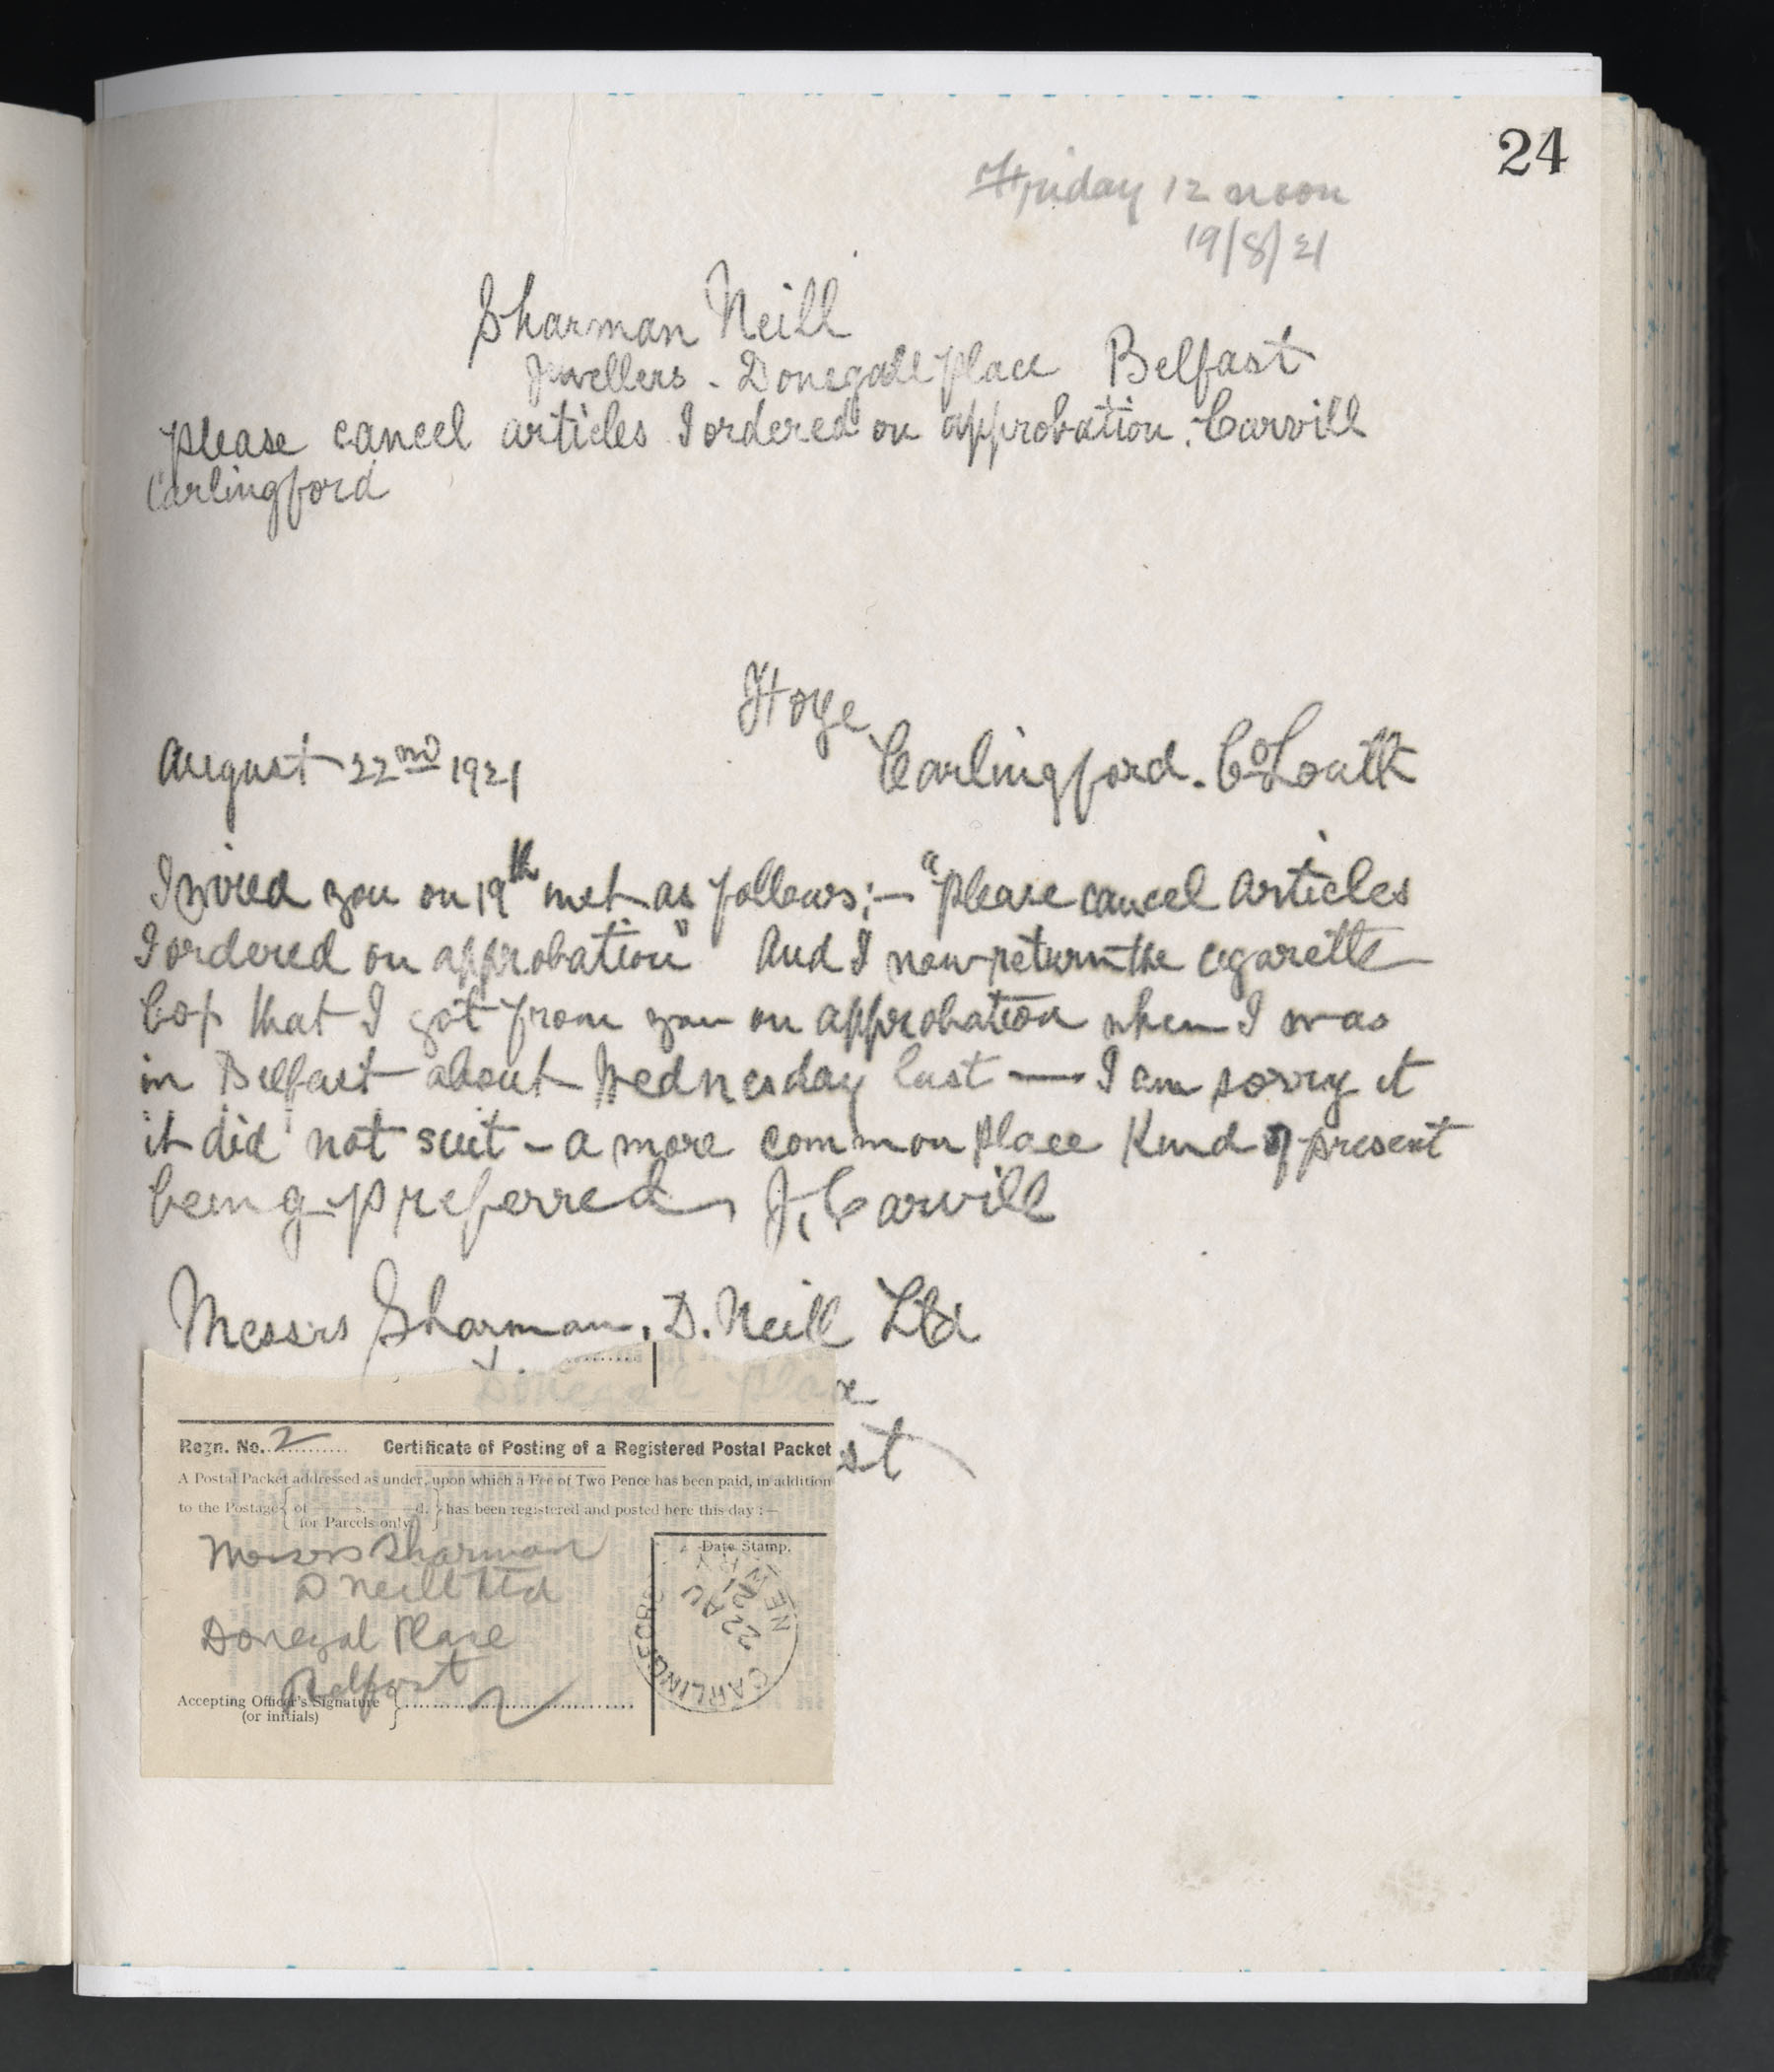 24
Friday 12 noon
19/8/21
Sharman Neill
Jewellers - Donegall place Belfast
please cancel articles I ordered on approbation. Carvill
Carlingford
August 22nd 1921
Carlingford. Co Louth
I wired you on 19th inst as follows;— "please cancel articles
I ordered on approbation" And I now return the cigarette
that I got from you on approbation when I was
in Belfast about Wednesday last — I am sorry it
it did not suit - a more common place kind of present
being preferred J. Carvill
Messrs Sharman. D. Neill Ltd
Donegal place
st
Regn. No. 2 Certificate of Posting of a Registered Postal Packet
A Postal Packet addressed as under, upon which a Fee of Two Pence has been paid, in addition
to the Postage { of s. d. for Parcels only. } has been registered and posted here this day :—
Date Stamp.
Messrs Sharman
D Neill Ltd
Donegal Place
Belfast
Accepting Officer's Signature
(or initials)
CARLINGFORD
22 AU
21
NEWRY